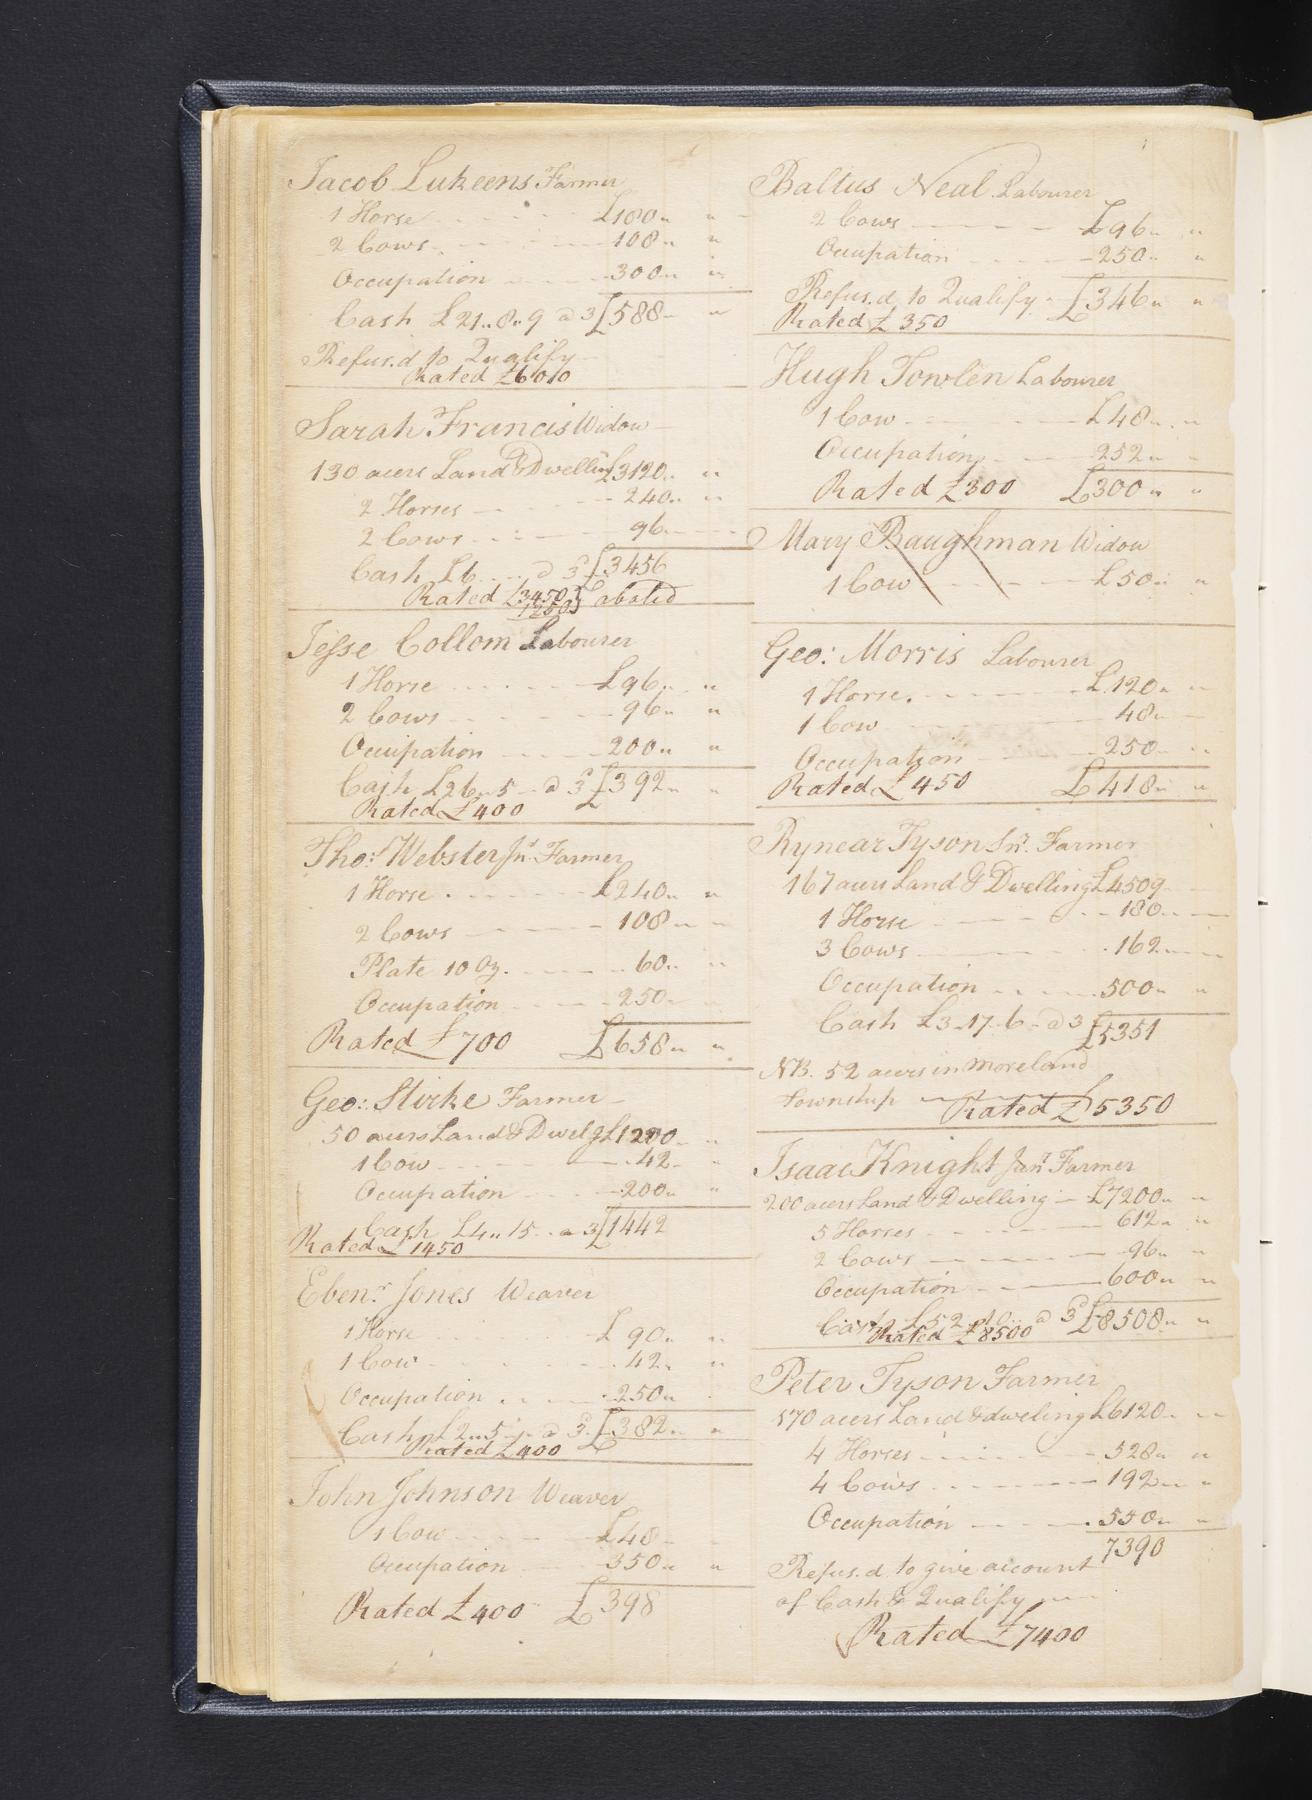 Jacob Lukeens Farmer
1 Horse £180
2 Cows 108
Occupation 300
Cash £21..8..9 a 3 £588
Refus.d to Qualify
Rated £600
Sarah Francis Widow
130 acers Land & Dwelling £3120
2 Horses 240
2 Cows 96
Cash £6 a 3 £3456
Rated £3450 abated
1250
Jesse Collom Labourer
1 Horse £96
2 Cows 96
Occuipation 200
Cash £26..5 a 3 £392
Rated £400
Tho.s Webster Jn.r Farmer
1 Horse £240
2 Cows 108
Plate 10 Oz. 60
Occupation 250
Rated £700 £658
Geo: Stirke Farmer
50 acers Land & Dwelg £1200
1 Cow 42
Occupation 200
Cash £4..15 a 3 £1442
Rated £1450
Eben.r Jones Weaver
1 Horse £90
1 Cow 42
Occupation 250
Cash £2..5 a 3 £382
Rated £400
John Johnson Weaver
1 Cow £48
Occupation 350
Rated £400 £398
Baltus Neal Labourer
2 Cows £96
Occupation 250
Refus.d to Qualify £346
Rated £350
Hugh Towlen Labourer
1 Cow £48
Occupation 252
Rated £300 £300
Mary Baughman Widow
1 Cow £50
Geo: Morris Labourer
1 Horse £120
1 Cow 48
Occupation 250
Rated £450 £418
Rynear Tyson Sn.r Farmer
167 acers Land & Dwelling £4509
1 Horse 180
3 Cows 162
Occupation 500
Cash £3..17..6 a 3 £5351
NB. 52 acers in moreland
Township Rated £5350
Isaac Knight Jun.r Farmer
200 acers Land & Dwelling £7200
5 Horses 612
2 Cows 96
Occupation 600
Cash £52..10 a 3 £8508
Rated £8500
Peter Tyson Farmer
170 acers Land & dweling £6120
4 Horses 528
4 Cows 192
Occupation 550
7390
Refus.d to give account
of Cash & Qualify
Rated £7400